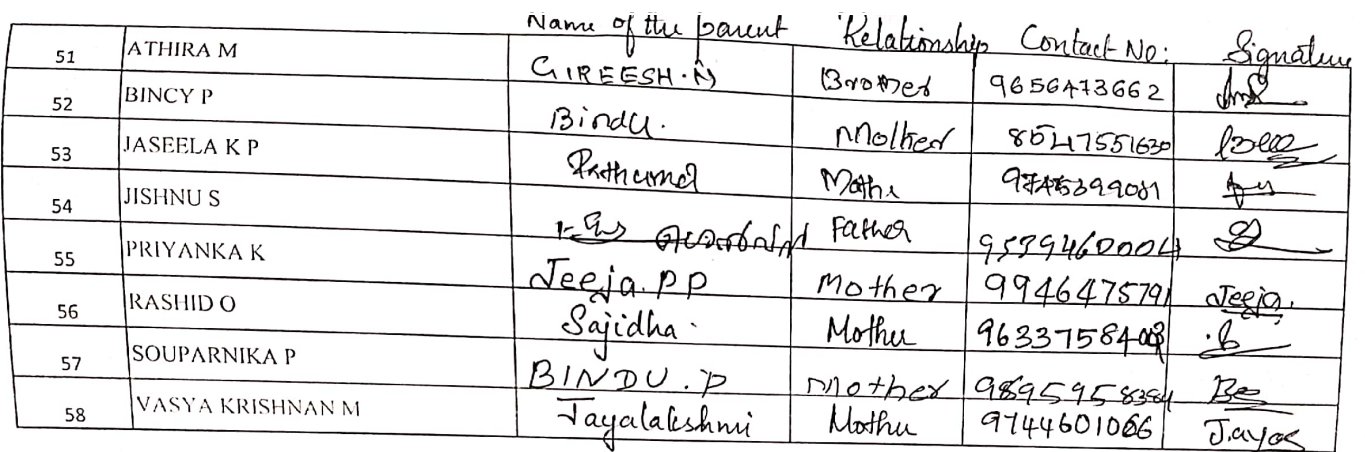 Name of the parent Relationship Contact No: Signature
51 ATHIRA M GIREESH.N Brother 9656473662
52 BINCY P Bindu. Mother 8547551630
53 JASEELA K P Fathuma Mothe 9745399081
54 JISHNU S Father 9539460004
55 PRIYANKA K Jeeja.PP Mother 9946475791 Jeeja.
56 RASHID O Sajidha. Mother
57 SOUPARNIKA P BINDU.P Mother 9895958384
58 VASYA KRISHNAN M Jayalakshmi Mother 9744601066 Jayas